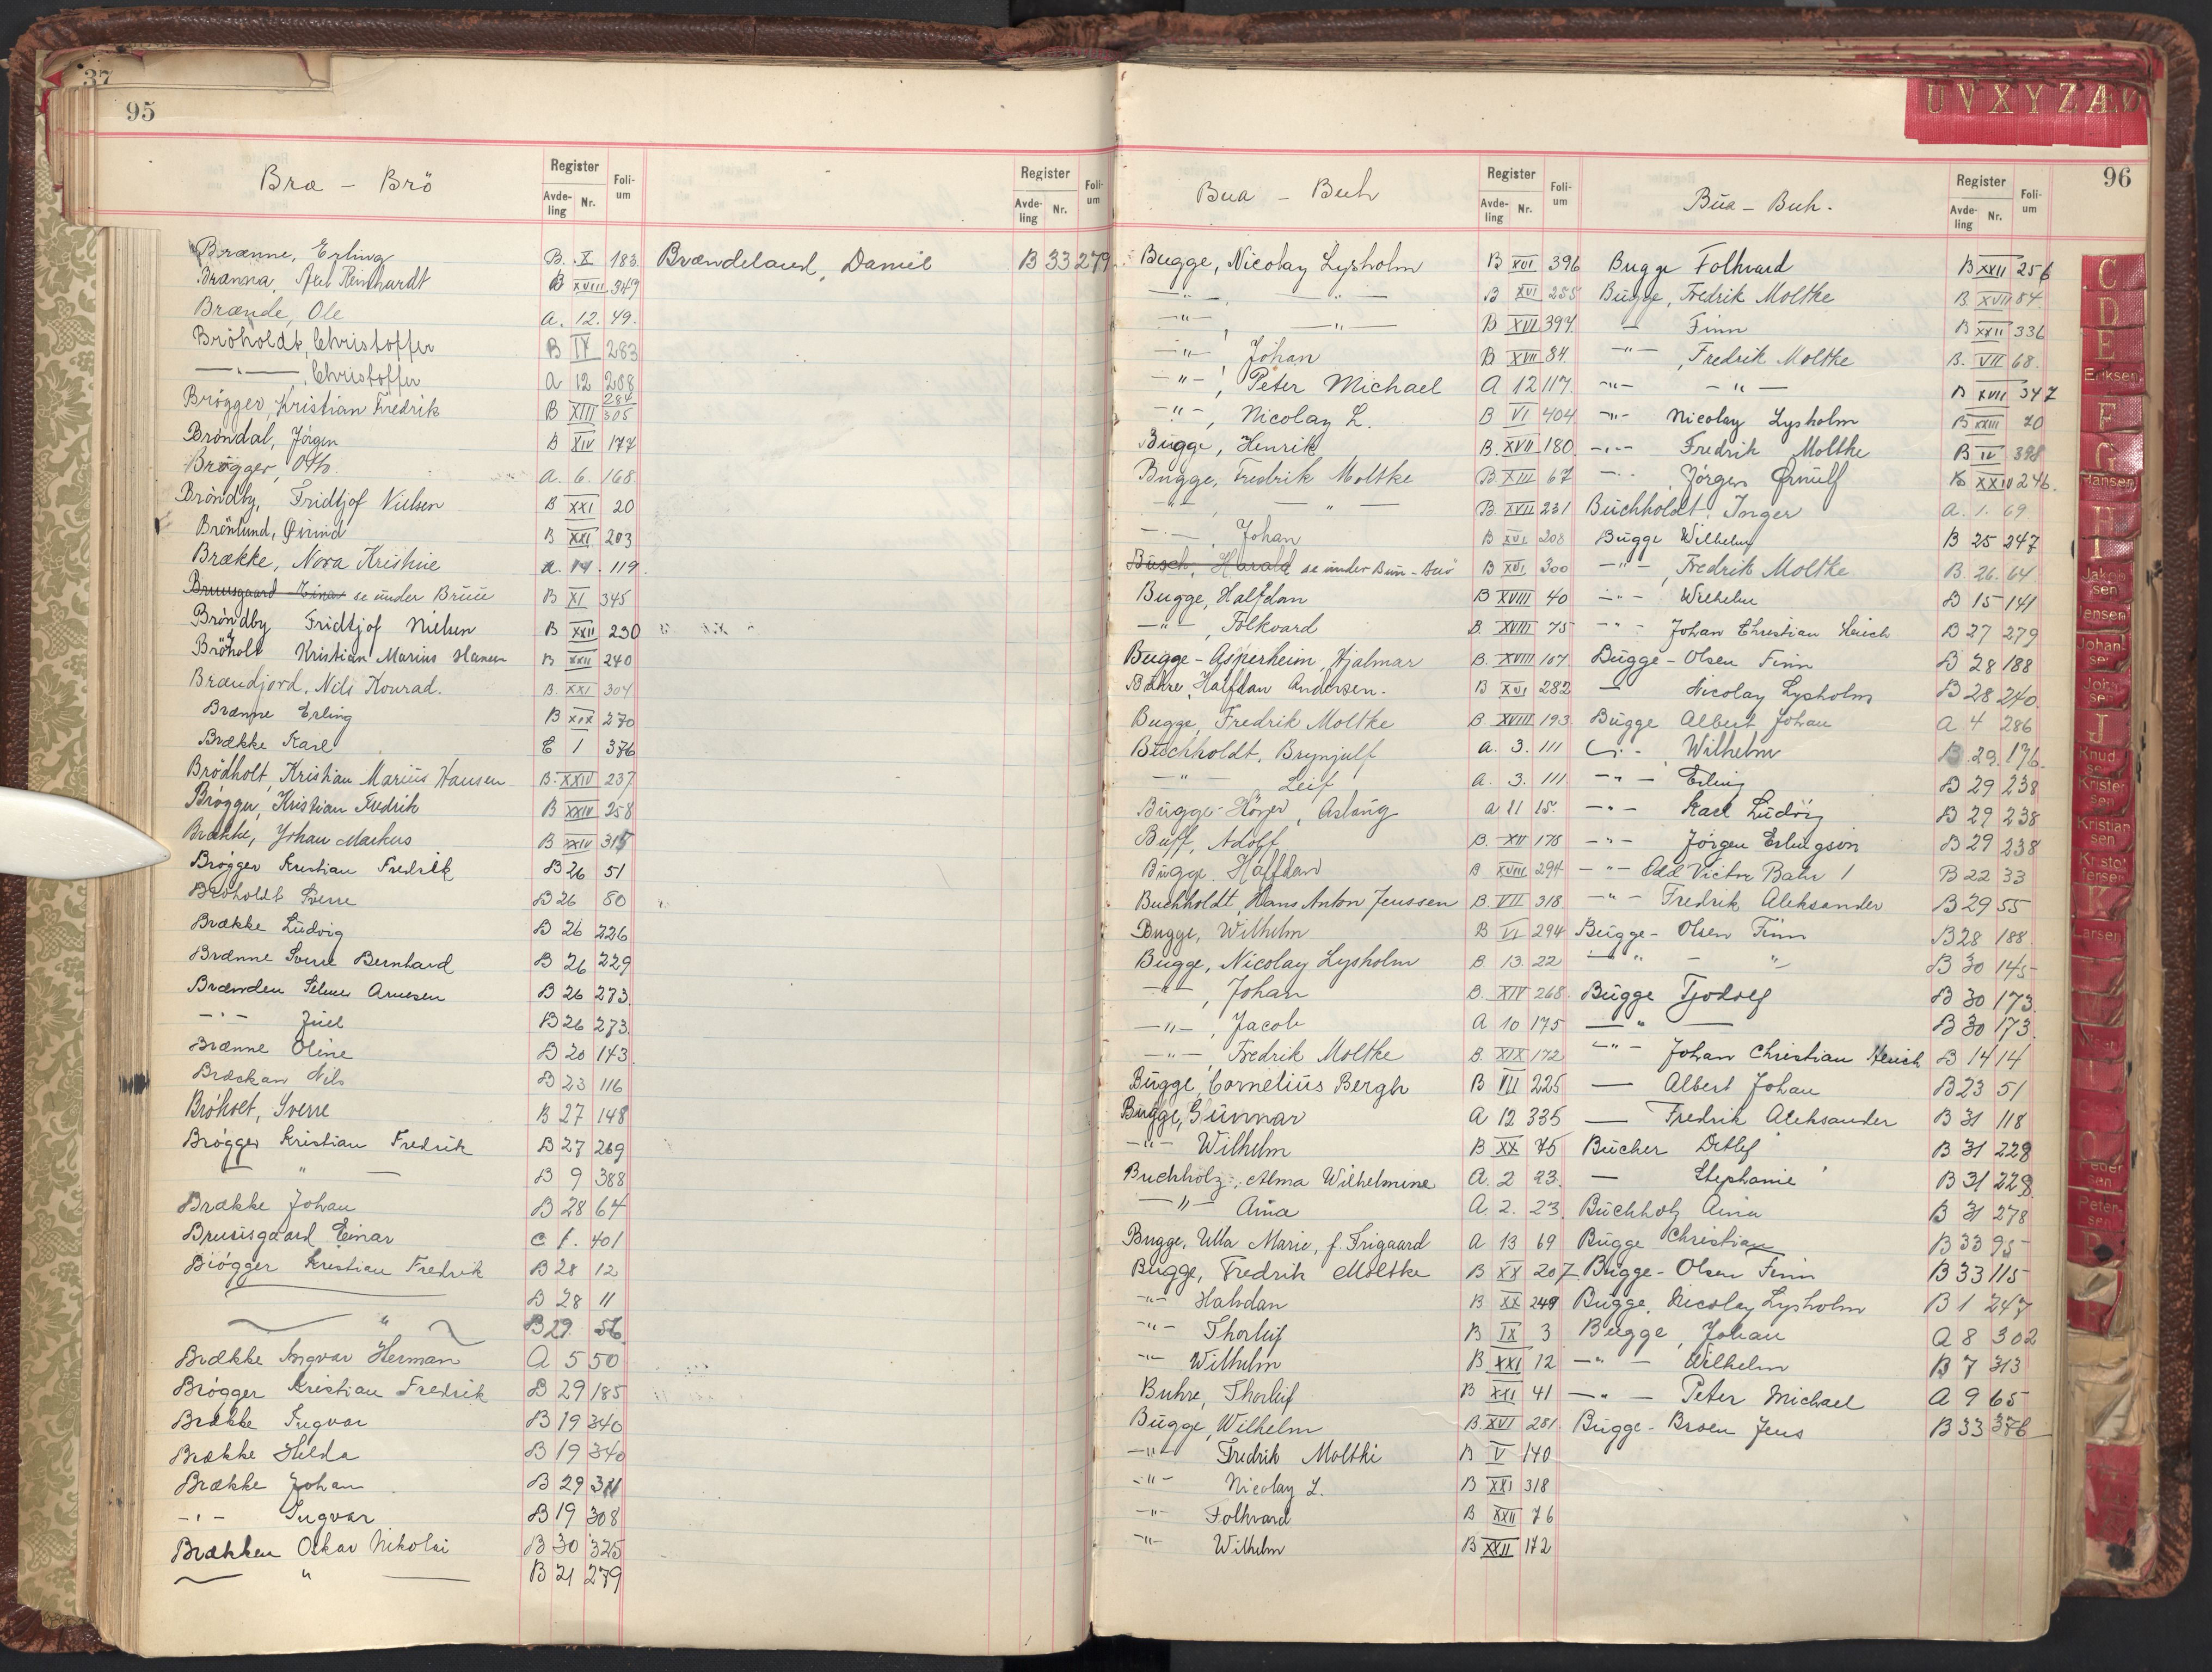 37
95
Bræ – Brö
Register
Avde-ling Nr.
Foli-um
Brænne, Erling B. X 183
Brænna, Axel Reinhardt B XVIII 349
Brænde, Ole A. 12. 49.
Bröholdt, Christoffer B IX 283
—"—, Christoffer A 12 208
Brögger, Kristian Fredrik B XIII 284 305
Bröndal, Jörgen B XIV 177
Brögger, Oth. A. 6. 168
Bröndby, Fridtjof Nielsen B XXI 20
Brönlund, Øivind B XXI 203
Brække, Nora Kristine A. 14. 119
Bruusgaard Einar se under Bruu B XI 345
Bröndby Fridtjof Nielsen B XXII 230
Bröholt Kristian Marius Hansen B XXII 240
Brændjord, Nils Konrad. B. XXI 304
Brænne Erling B XIX 270
Brække Karl C 1 376
Brödholt, Kristian Marius Hansen B. XXIV 237
Brögger, Kristian Fredrik B XXIV 258
Brække, Johan Markus B XXIV 315
Brögger Kristian Fredrik B 26 51
Bröholdt Sverre B 26 80
Brække Ludvig B 26 226
Brænne Sverre Bernhard B 26 229
Brænden Arnesen B 26 273
—"— Juel B 26 273
Brænne Oline B 20 143
Bræckan Nils B 23 116
Bröholt, Sverre B 27 148
Brögger Kristian Fredrik B 27 269
— " — B 9 388
Brække Johan B 28 64
Bruusgaard Einar C 1. 401
Brögger Kristian Fredrik B 28 12
B 28 11
— " — B 29. 56
Brække Ingvar Herman A 5 50
Brögger Kristian Fredrik B 29 185
Brække Ingvar B 19 340
Brække Hilda B 19 340
Brække Johan B 29 311
—"— Ingvar B 19 308
Brækken Oskar Nikolai B 30 325
— " — B 21 279
Register
Avde-ling Nr.
Foli-um
Brændeland, Daniel B 33 279
Bua – Buh
Register
Avde-ling Nr.
Foli-um
Bugge, Nicolay Lysholm B XVI 396
—"—, —"— B XVI 255
—"—, —"— B XVI 397
—"—, Johan B XVII 84.
—"—, Peter Michael A 12 117.
—"—, Nicolay L. B VI 404
Bugge, Henrik B. XVII 180
Bugge, Fredrik Moltke B. XIII 67
—"—, —"— B. XVII 231
—"—, Johan B XVI 208
Busch, Harald se under Bun - B XVI 300
Bugge, Halfdan B XVIII 40
—"—, Folkvard B. XVIII 75
Bugge-Asperheim, Hjalmar B. XVIII 107
Buhre, Halfdan Andersen. B XVI 282
Bugge, Fredrik Moltke B. XVIII 193
Buchholdt, Brynjulf A. 3. 111
—"— Leif A. 3. 111
Bugge-Höyer, Aslaug A 11 15.
Buff, Adolf B. XII 178
Bugge, Halfdan B XVIII 294
Buchholdt, Hans Anton Jenssen B. VII 318
Bugge, Wilhelm B VI 294
Bugge, Nicolay Lysholm B. 13. 22
—"—, Johan B. XIV 268
—"—, Jacob A 10 175
—"—, Fredrik Moltke B. XIX 172
Bugge, Cornelius Bergh B VII 225
Bugge, Gunnar A 12 335
—"— Wilhelm B XX 75
Buchholz, Alma Wilhelmine A. 2 23.
—"— Aina A. 2. 23.
Bugge, Ulla Marie, f. Frigaard A 13 69
Bugge, Fredrik Moltke B XX 207
—"— Halvdan B XX 249
—"— Thorleif B IX 3
—"— Wilhelm B XXI 12
Buhre, Thorleif B XXI 41
Bugge, Wilhelm B. XVI 281
—"— Fredrik Moltke B V 140
—"— Nicolay L. B XXI 318
—"— Folkvard B XXII 76
—"— Wilhelm B XXII 172
Bua – Buh.
Register
Avde-ling Nr.
Foli-um
96
Bugge Folkvard B XXII 256
Bugge, Fredrik Moltke B. XVII 84.
— Finn B XXII 336
—"—, Fredrik Moltke B. VII 68.
—"— —"— B XVII 347
—"— Nicolay Lysholm B XXIII 70
—"— Fredrik Moltke B IV 398
—"—, Jörgen Ørnulf B XXIV 246.
Buchholdt, Inger A. 1. 69
Bugge Wilhelm B 25 247
—"—, Fredrik Moltke B. 26. 64
—"— Wilhelm B 15 141
—"— Johan Christian Heuch B 27 279
Bugge-Olsen Finn B 28 188
— Nicolay Lysholm B 28 240.
Bugge Albert Johan A 4 286
—"— Wilhelm B. 29. 176.
—"— Erling B 29 238
—"— Karl Ludvig B 29 238
—"— Jörgen Erlingson B 29 238
—"— Odd Victor Bahr B 22 33
—"— Fredrik Aleksander B 29 55
Bugge-Olsen Finn B 28 188
—"— — "— B 30 145
Bugge Tjodolf B 30 173
— " — B 30 173
—"— Johan Christian Heuch B 14 14
— Albert Johan B 23 51
— Fredrik Aleksander B 31 118
Bucher Detlef B 31 228
— Stephanie B 31 228
Buchholz Aina B 31 278
Bugge Christian B 33 95
Bugge-Olsen Finn B 33 115
Bugge, Nicolay Lysholm B 1 247
Bugge, Johan A 8 302
—"— Wilhelm B 7 313
—"— Peter Michael A 9 65
Bugge-Broen Jens B 33 376
U V X Y Z Æ Ø
C
D
E
Eriksen
F
G
Hansen
H
I
Jakob-sen
Jensen
Johan-sen
John-sen
J
Knud-sen
Krister-sen
Kristian-sen
Kristof-fersen
K
Larsen
L
O
Peder-sen
Peter-sen
P
R